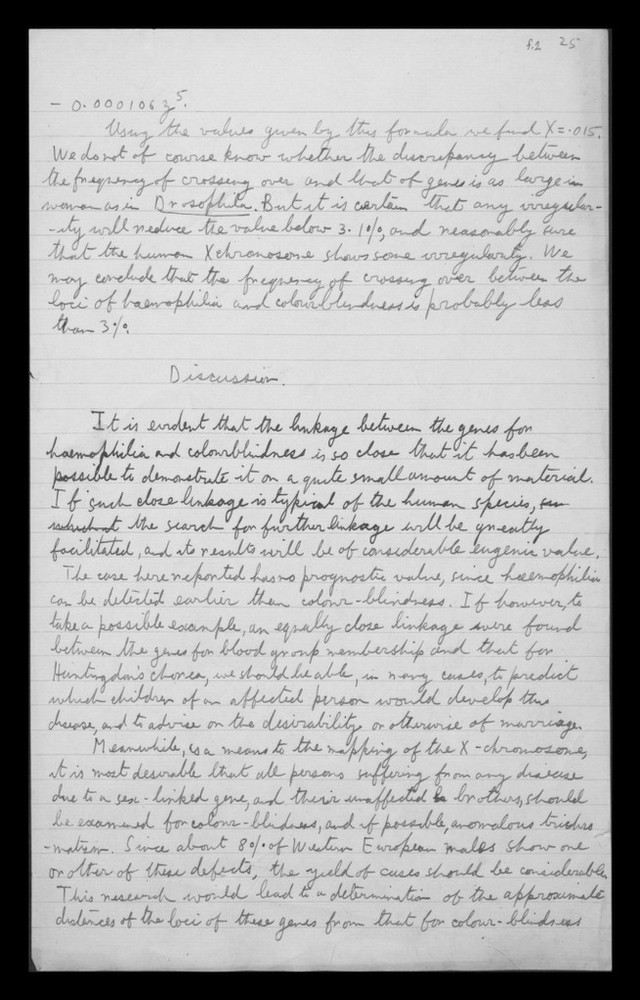 f.2 25
- 0.000106 z⁵.
Using the values given by this formula we find X = .015.
We do not of course know whether the discrepancy between
the frequency of crossing over and that of genes is as large in
woman as in Drosophila. But it is certain that any irregular-
-ity will reduce the value below 3.1%, and reasonably sure
that the human X chromosome shows some irregularity. We
may conclude that the frequency of crossing over between the
loci of haemophilia and colourblindness is probably less
than 3%.
Discussion.
It is evident that the linkage between the genes for
haemophilia and colourblindness is so close that it has been
possible to demonstrate it on a quite small amount of material.
If such close linkage is typical of the human species,
the search for further linkage will be greatly
facilitated, and its results will be of considerable eugenic value.
The case here reported has no prognostic value, since haemophilia
can be detected earlier than colour-blindness. If however, to
take a possible example, an equally close linkage were found
between the genes for blood group membership and that for
Huntingdon's chorea, we should be able, in many cases, to predict
which children of an affected person would develop this
disease, and to advise on the desirability or otherwise of marriage.
Meanwhile, as a means to the mapping of the X-chromosome,
it is most desirable that all persons suffering from any disease
due to a sex-linked gene, and their unaffected brothers, should
be examined for colour-blindness, and if possible, anomalous trichro
-matism. Since about 8% of Western European males show one
or other of these defects, the yield of cases should be considerable.
This research would lead to a determination of the approximate
distances of the loci of these genes from that for colour-blindness